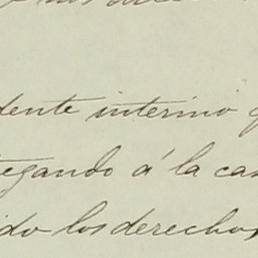 dente interino
tegando á la cas
ido los derechos